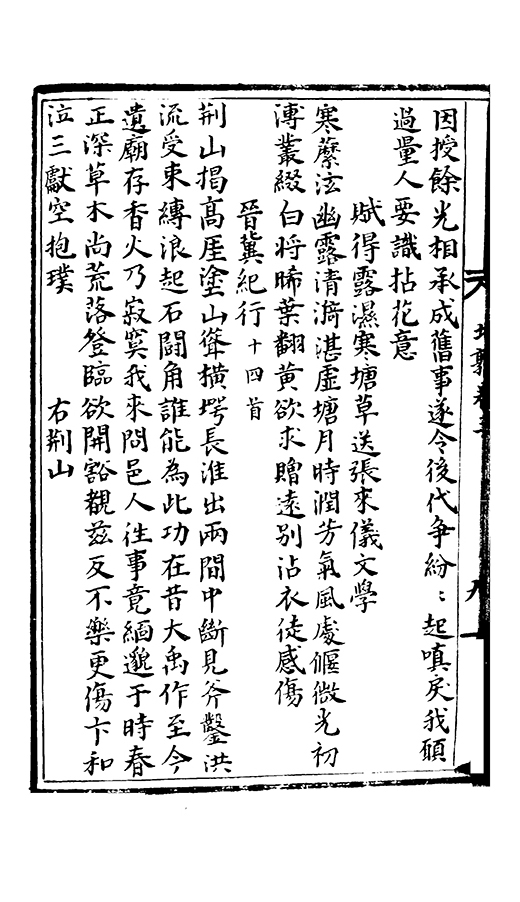 因授餘光相承成舊事遂令後代争紛〻起嗔戾我願
過量人要識拈花意
賦得露濕寒塘草送張來儀文學
寒藂泫幽露清漪湛虛塘月時潤芳氣風處偃微光初
漙叢綴白将晞葉翻黄欲求贈遠别沾衣徒感傷
晉冀紀行十四首
荆山揭髙厓塗山聳横㟧長淮出兩間中斷見斧鑿洪
流受束縳浪起石闘角誰能為此功在昔大禹作至今
遺廟存香火乃寂寞我來問邑人徃事竟緬邈于時春
正深草木尚荒落登臨欲開豁覩兹反不樂更傷卞和
泣三獻空抱璞　右荆山